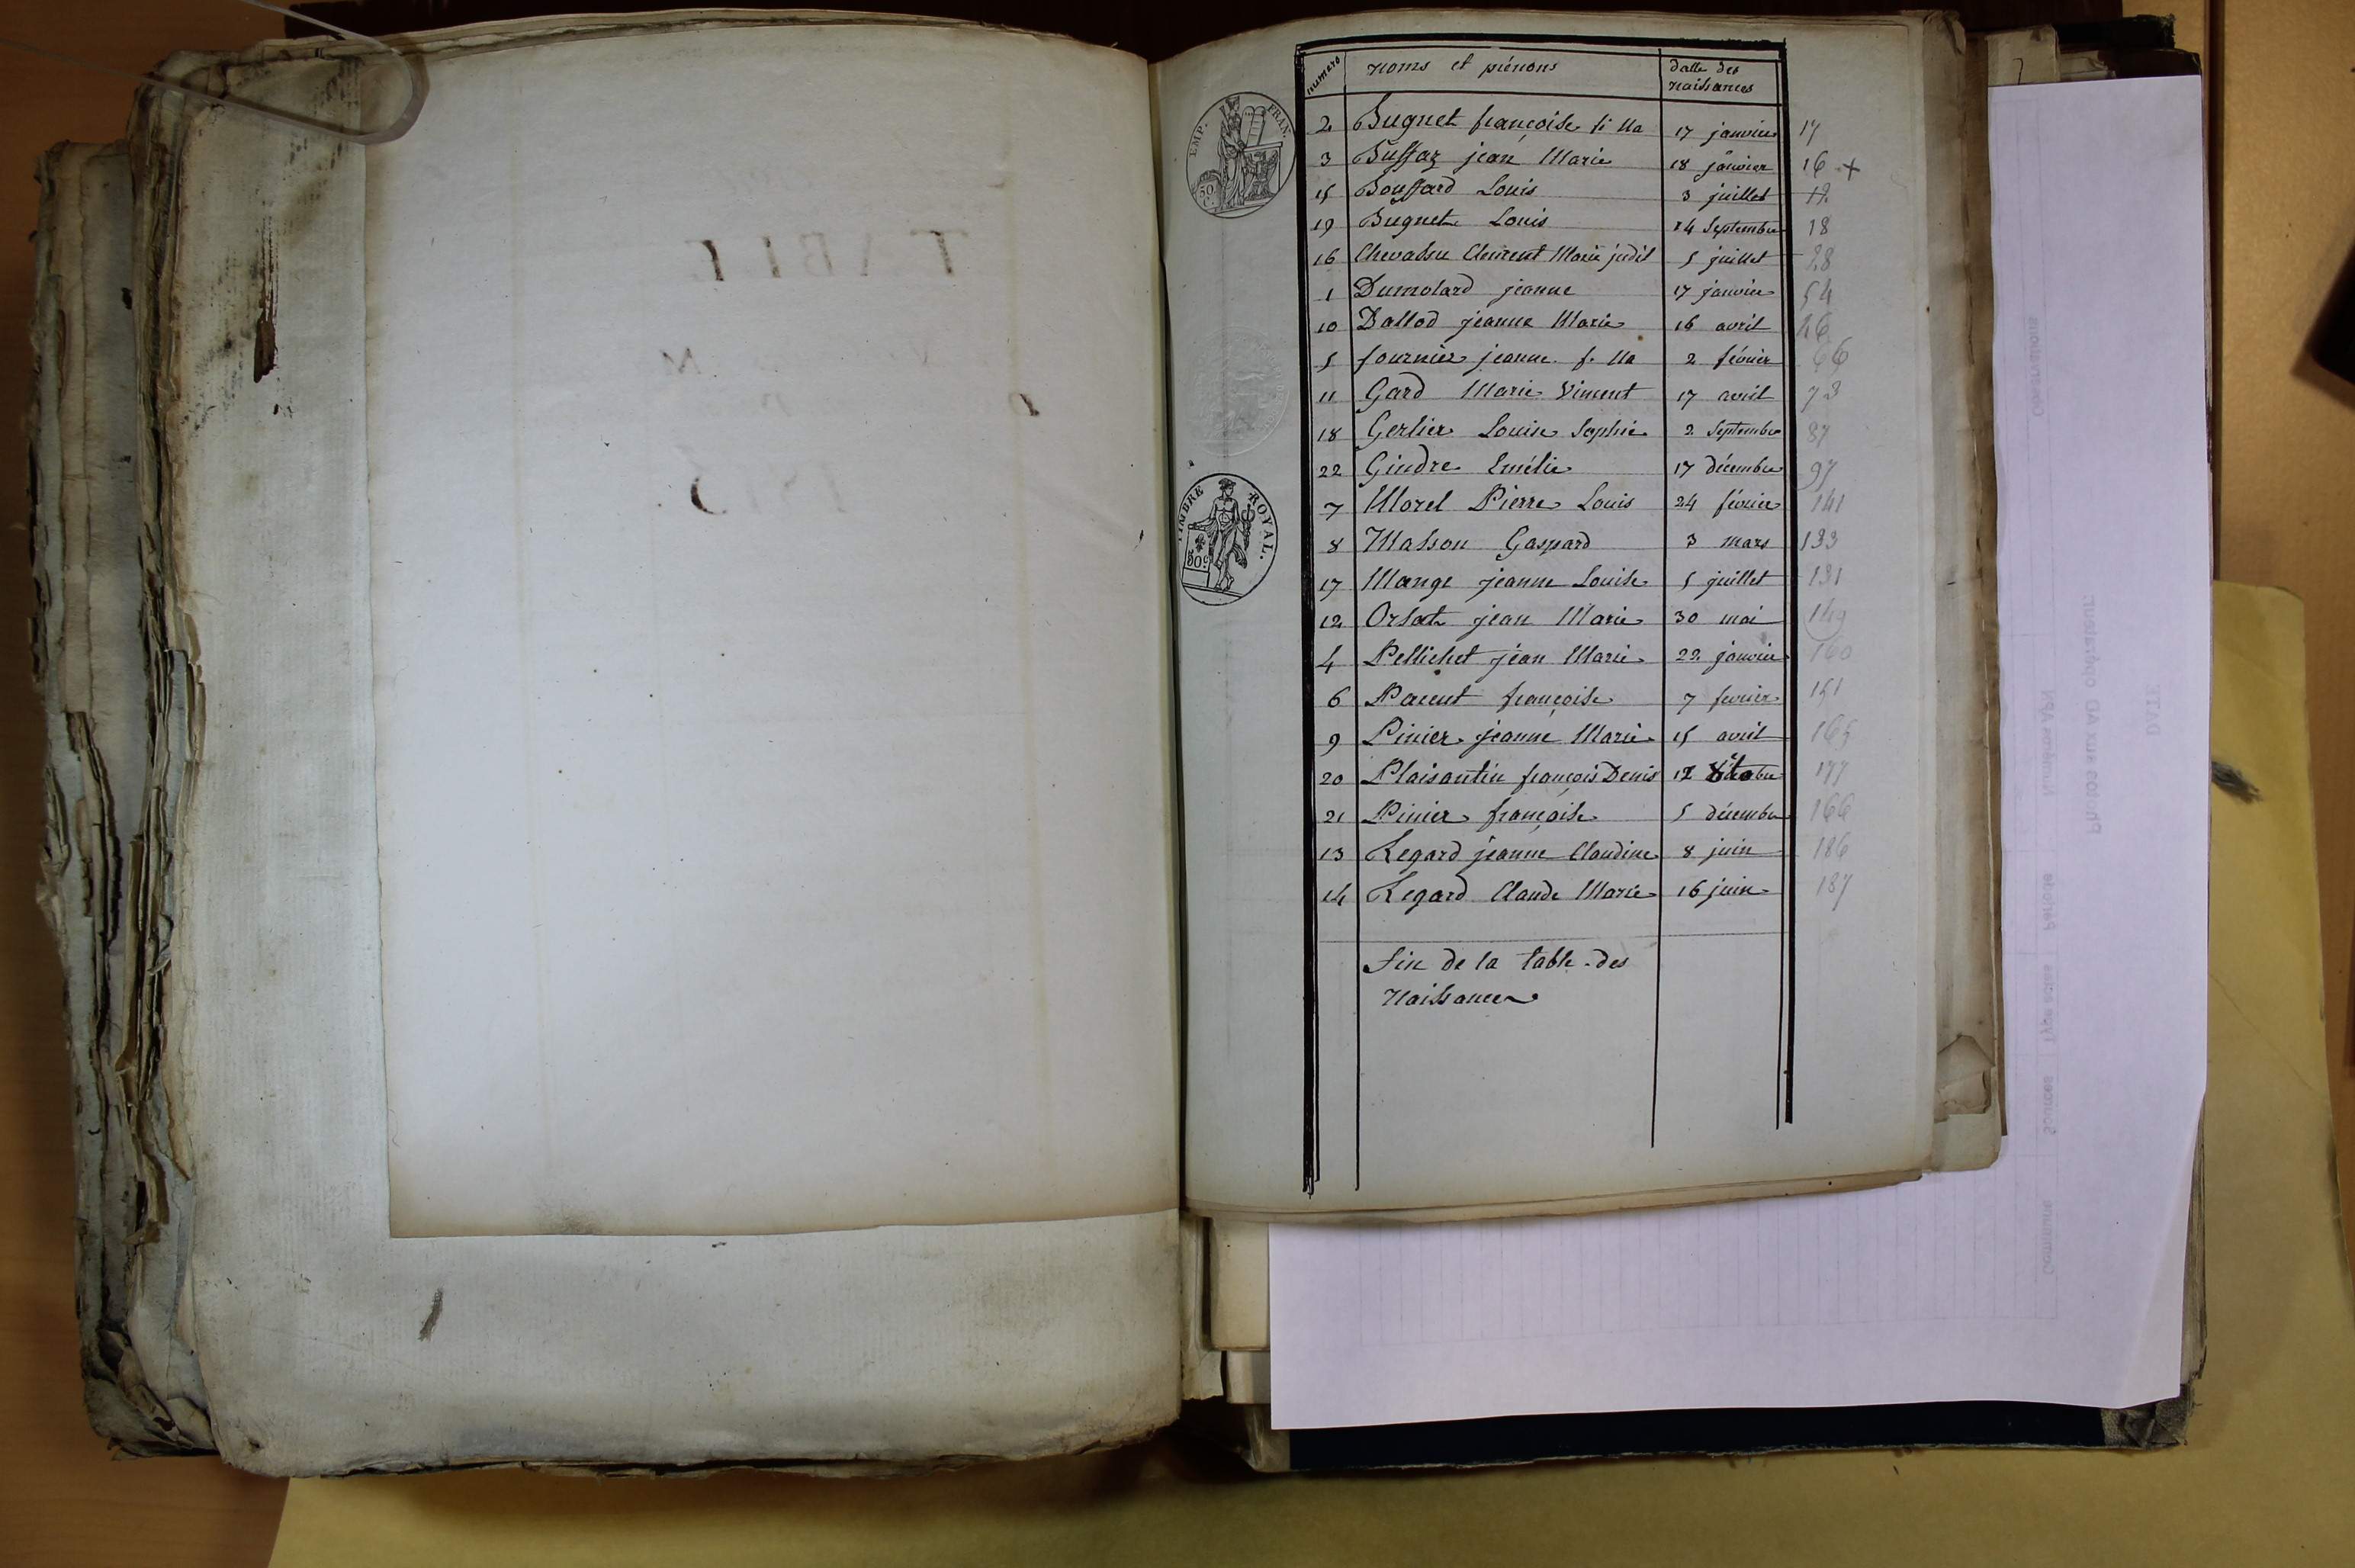 TABLE
EMP. FRAN.
50 C.
TIMBRE ROYAL.
50 c
numero noms et prénons datte des naissances
2 Bugnet françoise fi lla 17 janvier 17
3 Buffaz jean Marie 18 janvier 16 +
15 Bouffard Louis 3 juillet 12
19 Bugnet Louis 14 Septembre 18
16 Chevassu Clement Marie judit 5 juillet 28
1 Dumolard jeanne 17 janvier 54
10 Dallod jeanne Marie 16 avril 46
5 fournier jeanne f. lla 2 février 66
11 Gard Marie Vincent 17 avril 73
18 Gerlier Louise Sophie 2 Septembre 87
22 Gindre Emélie 17 décembre 97
7 Morel Pierre Louis 24 février 141
8 Masson Gaspard 3 mars 133
17 Mange jeanne Louise 5 juillet 131
12 Orsat jean Marie 30 mai 149
4 Pellichet jean Marie 22 janvier 160
6 Pacent françoise 7 fevrier 151
9 Pinier jeanne Marie 15 avril 165
20 Plaisantin françois Denis 12 8bre 177
21 Pinier françoise 5 décembre 166
13 Regard jeanne Claudine 8 juin 186
14 Regard Claude Marie 16 juin 187
fin de la table des
naissances